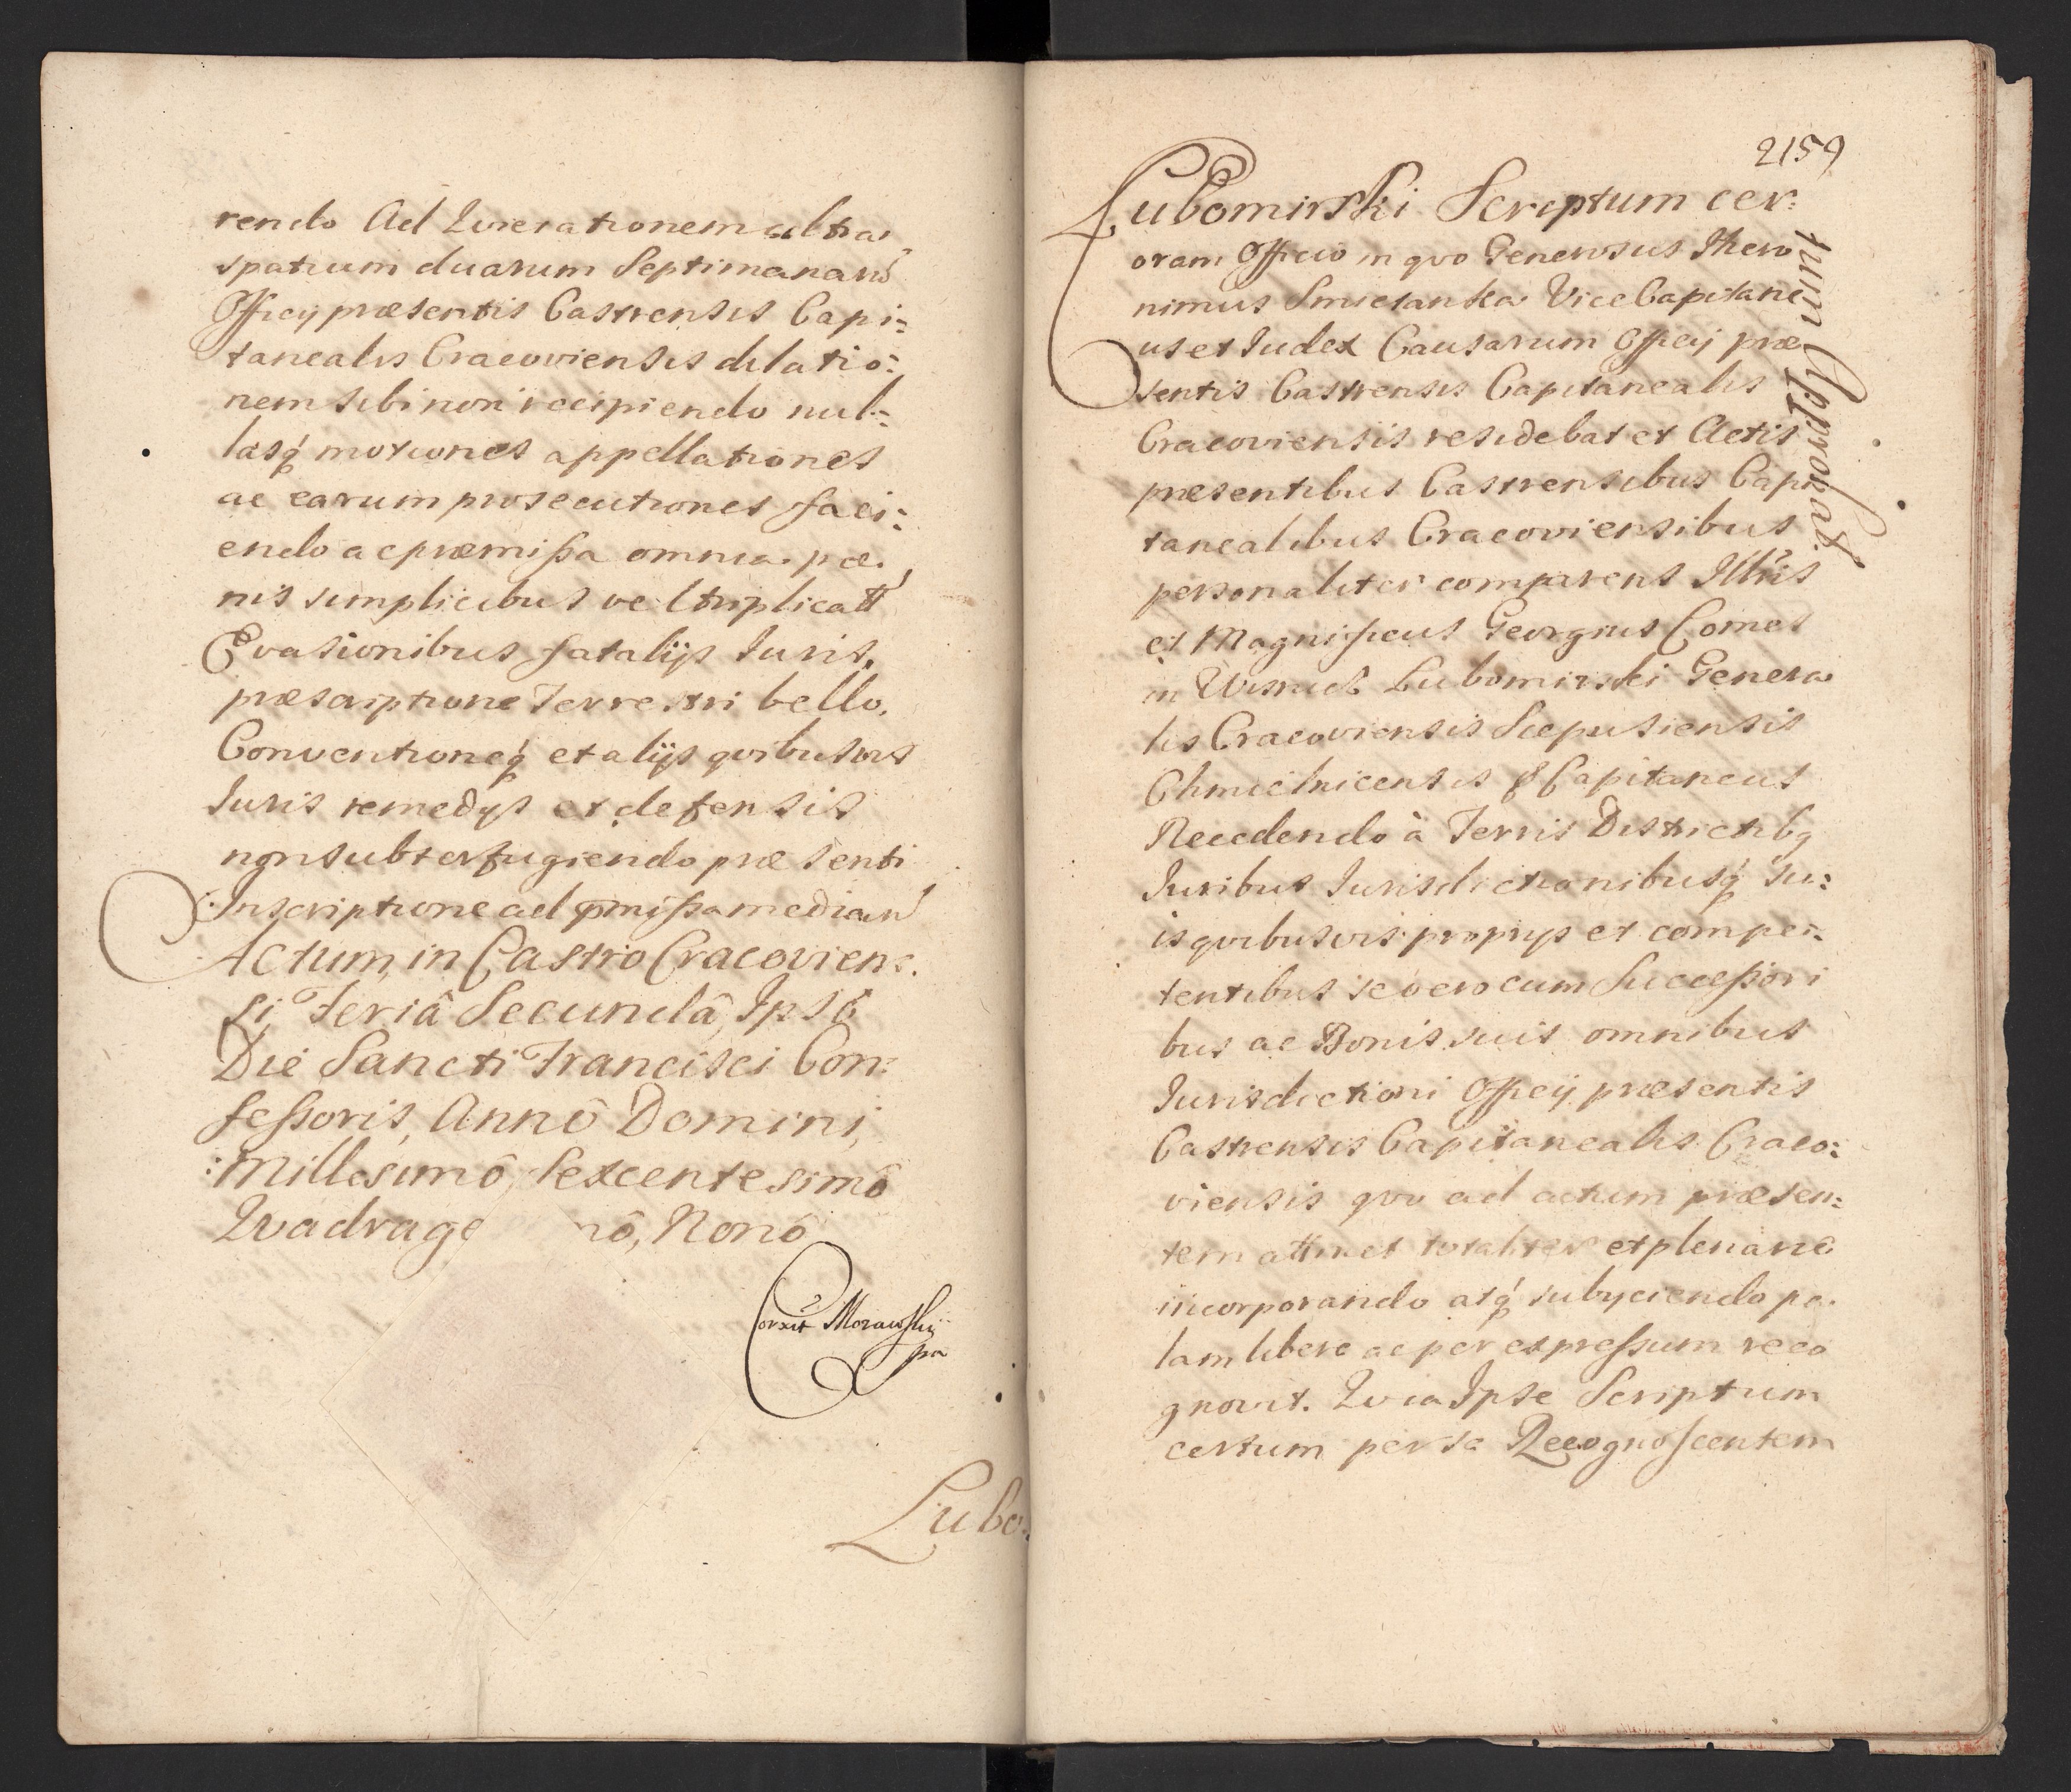 rendo Ad Qverelationem ultra
spatium duarum Septimanarũ
Officij præsentis Castrensis Capi:
tanealis Cracoviensis dilatio:
nem sibi non recipiendo nul:
lasq́ motiones appellationes
ac earum prosecutiones faci:
endo ac præmißa omnia pæ
nis simplicibus vel triplicatt
Evasionibus fatalijs Iuris,
præscriptione Terrestri bello,
Conventioneq́ et alijs qvibusvis
Iuris remedys et defensis
non subterfugiendo præsenti
Inscriptione ad pmißa median̄
Actum in Castro Cracovien:
si, Feriâ Secundâ, Ipsô
Die Sancti Francisci Con:
feßoris, Annô Domini,
Millesimô, Sexcentesimô
Qvadrage mô, Nonô
Corxit Morawskij
pa
Lubo:
2159
Lubomirski Scriptum cer:
tum Approbat.
oram Officio in qvo Generosus Ihero
nimus Smietanka ViceCapitane
us et Iudex Causarum Officij præ
sentis Castrensis Capitanealis
Cracoviensis residebat et Actis
præsentibus Castrensibus Capi
tanealibus Cracoviensibus
personaliter comparens Illris
et Magnificus Georgius Comes
in Wisnicz Lubomirski Genera
lis Cracoviensis Scepusiensis
Chmielnicensis & Capitaneus
Recedendo à Terris Districtibq
Iuribus Iurisdictionibusq́ su:
is qvibusvis proprijs et compe:
tentibus se vero cum Succeßori
bus ac Bonis suis omnibus
Iurisdictioni Officij præsentis
Castrensis Capitanealis Craco:
viensis qvo ad actum præsen:
tem attinet totaliter et plenarie
incorporando atq́ subyciendo pa
lam libere ac per expreßum reco
gnovit. Qvia Ipse Scriptum
certum per se Recognoscentem